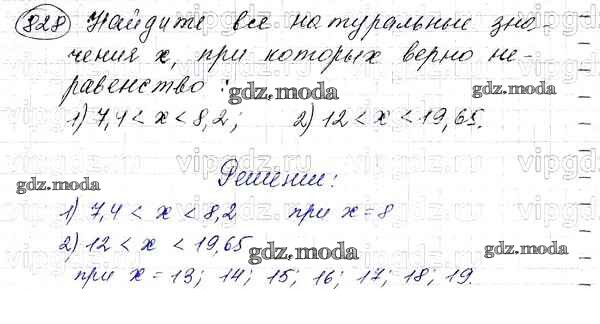 828 Найдите все натуральные зна-
чения x, при которых верно не-
равенство:
gdz.moda
gdz.moda
1) 7,4 < x < 8,2; 2) 12 < x < 19,65.
Решение:
gdz.moda
1) 7,4 < x < 8,2 при x = 8
2) 12 < x < 19,65
gdz.moda
gdz.moda
при x = 13; 14; 15; 16; 17; 18; 19.